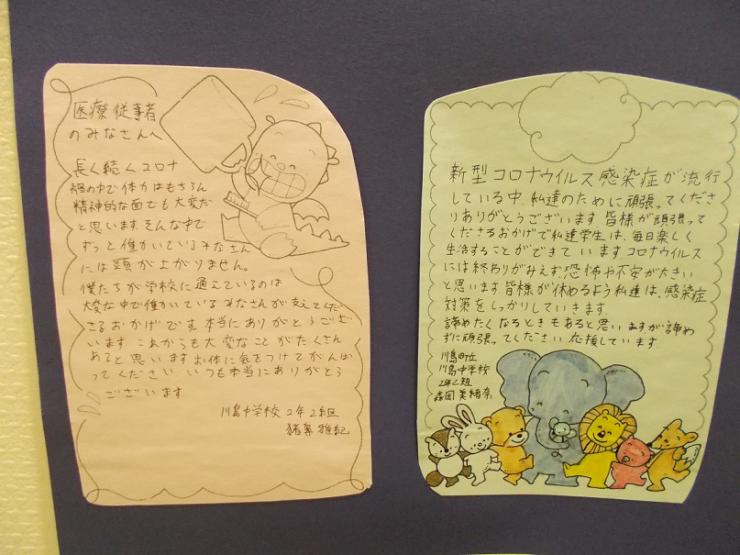 医療従事者
のみなさんへ
長く続くコロナ
禍の中で体力はもちろん
精神的な面でも大変だ
と思います。そんな中で
ずっと働いているみなさん
には頭が上がりません。
僕たちが学校に通えているのは
大変な中で働いているみなさんが支えてくだ
さるおかげです。本当にありがとうござ
います これからも大変なことがたくさん
あると思いますお体に気をつけてがんば
ってください いつも本当にありがとう
ございます
川島中学校2年2組
新型コロナウイルス感染症が流行
している中、私達のために頑張ってくださ
りありがとうございます 皆様が頑張って
くださるおかげで私達学生は、毎日楽しく
生活することができています コロナウイルス
には終わりがみえず恐怖や不安が大きい
と思います 皆様が休めるよう私達は、感染症
対策をしっかりしていきます
諦めたくなるときもあると思いますが諦め
ずに頑張ってください 応援しています
川島町立
川島中学校
2年2組